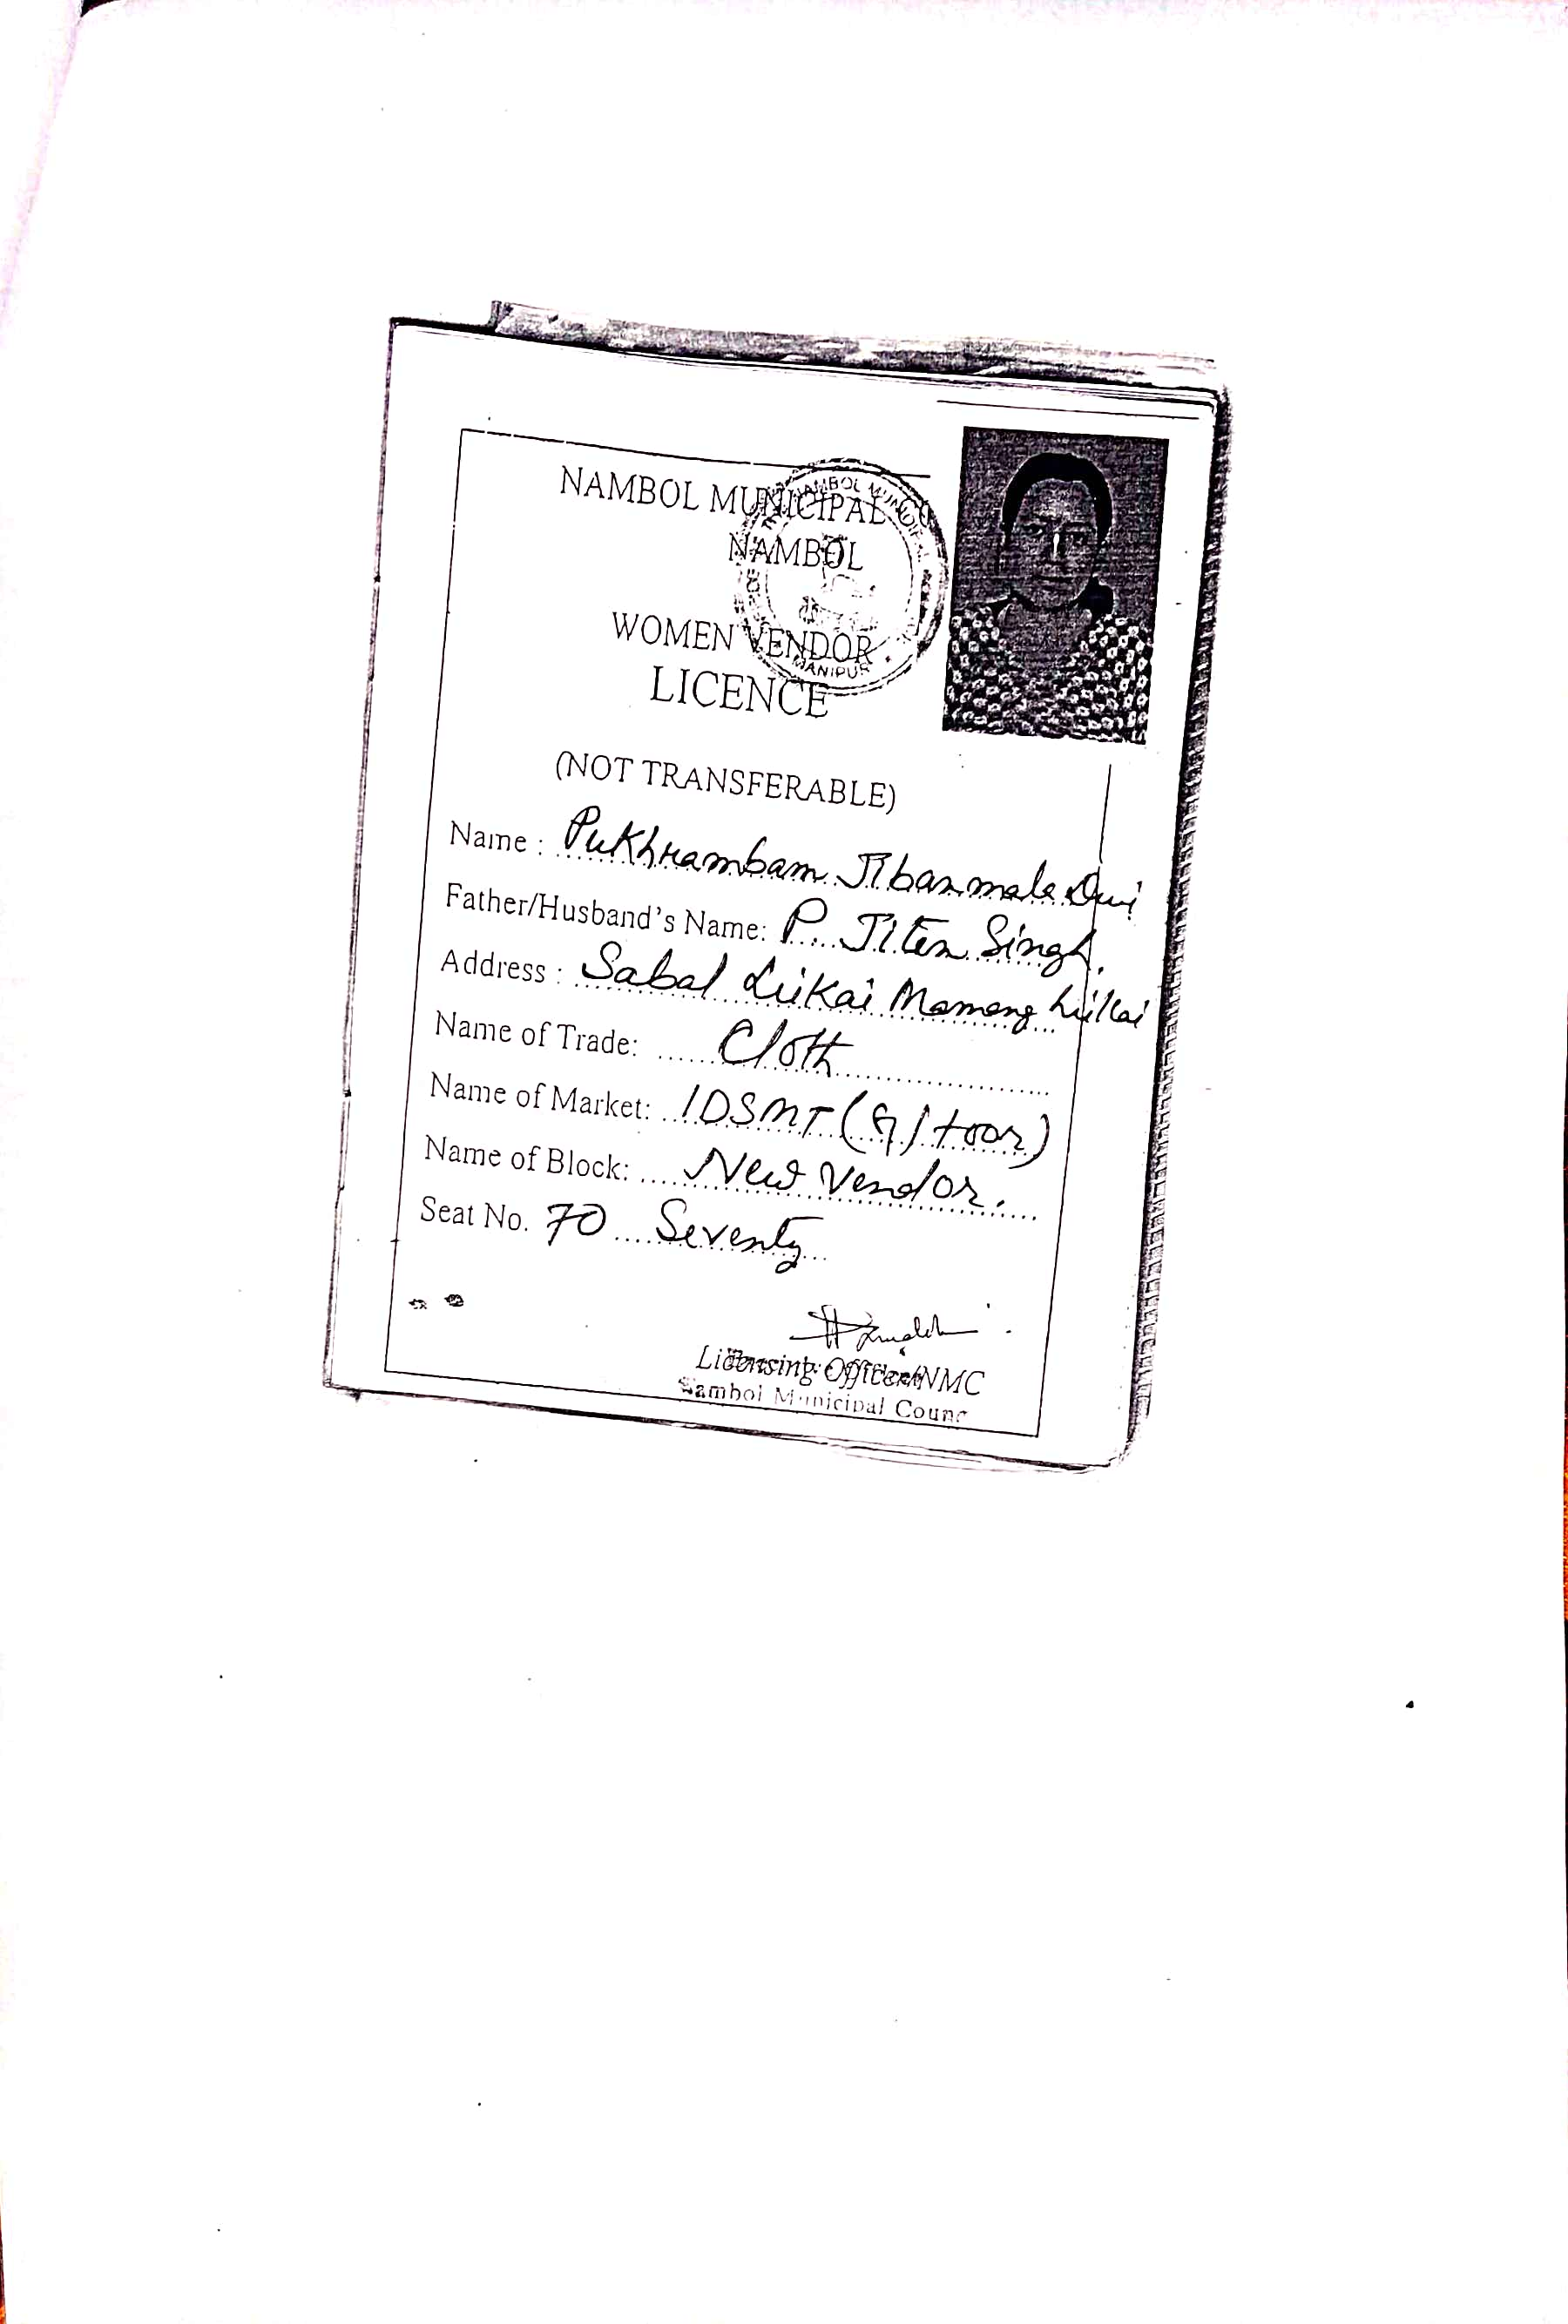 NAMBOL MUNICIPAL CO
NAMBOL
WOMEN VENDOR
LICENCE
(NOT TRANSFERABLE)
Name : Pukhrambam Jibanmala Devi
Father/Husband's Name: P. Jiten Singh.
Address : Sabal Leikai Mamang Leikai
Name of Trade: Cloth
Name of Market: IDSMT (G/
Name of Block: New Vendor.
Seat No. 70 Seventy
Licensing Officer/NMC
Nambol Municipal Counc
NAMBOL MUNICIPAL
MANIPUR